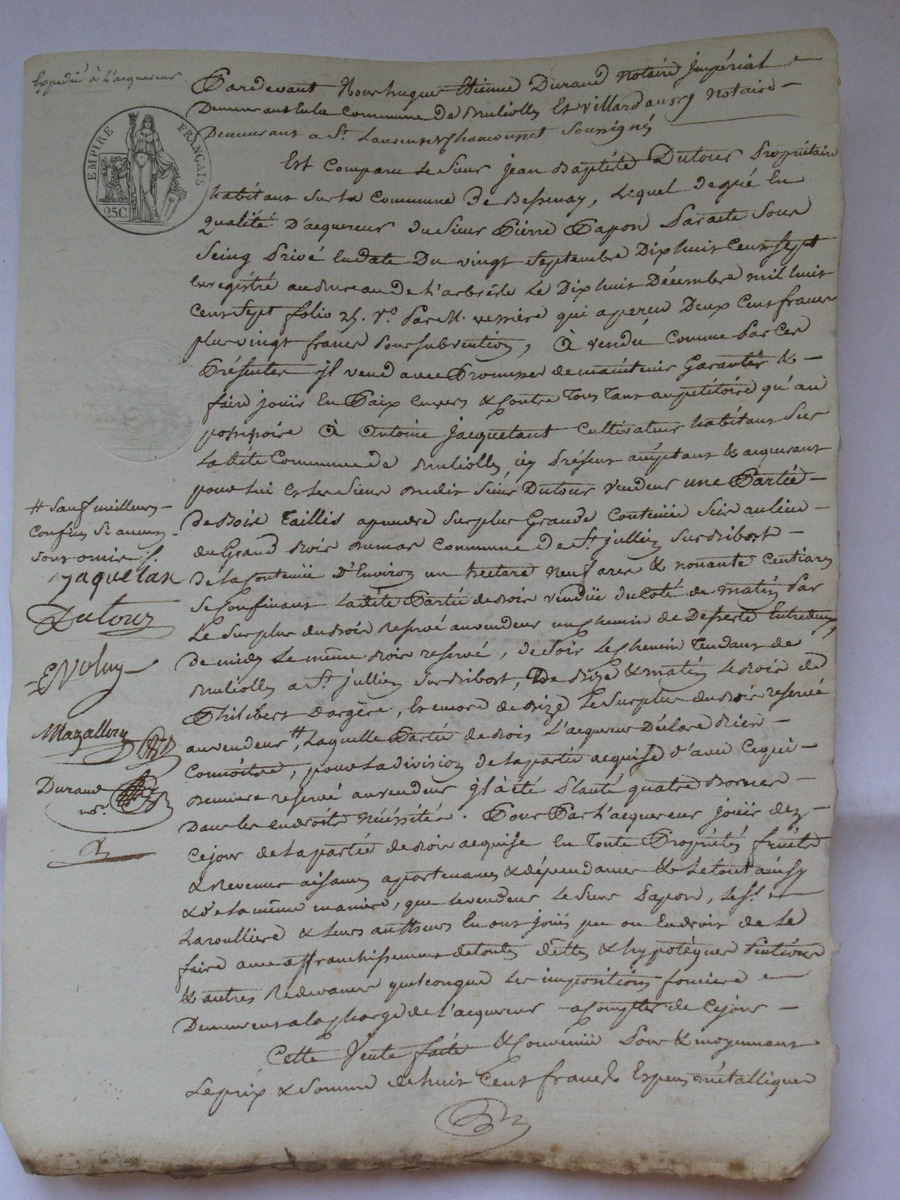 Expedié à L'acquereur
EMPIRE FRANÇAIS
25C
Pardevant Nous hugue Etienne Durand notaire Jmpérial
Demeurant en la Commune de Brulliolle Et Villard aussy notaire
Demeurant a St. Laurent de Chamousset Soussignés
Est Comparu Le Sieur Jean Baptiste Dutour Propriétaire
habitant Sur La Commune de Bessenay, Lequel De gré En
qualité D'acquereur du Sieur Pierre Papon Par acte Sous
Seing Privé En date Du vingt Septembre Dix huit Cent Sept
Enregistré au Bureau de L'arbresle Le Dix huit Décembre mil huit
Cent Sept folio 25. Vo. Par M. verrière qui a perçu Deux Cent francs
plus vingt francs Pour Subvention, à Vendu Comme Par Ces
Présentes Jl vend avec Promesse de maintenir Garantir &
faire Jouir En Paix Envers & Contre Tous Tant au petitoire qu'au
possessoire à Antoine Jacquetant Cultivateur habitant Sur
La dite Commune de Brulliolle, icy Présent acceptant & acquerant
pour Lui et Les Siens dudit Sieur Dutour Vendeur une Partie
de Bois Taillis a prendre Sur plus Grande Contenüe Scis au lieu
du Grand Bois Dumas Commune de St. Jullien Sur Bibost
De La Contenüe D'Environ un hectare neuf ares & nonante Centiares
Se Confinant La dite Partie de Bois vendüe du Coté de matin Par
Le Surplus du Bois reservé au vendeur un Chemin de Deserte Entredeux
de midy Le même Bois reservé, de Soir Le Chemin Tendant de
Brulliolle a St. Jullien Sur Bibost, De Bize & matin Le Bois de
Philibert Dargère, Et encore de Bize Le Surplus du Bois reservé
au vendeur # Laquelle Partie de Bois L'acquereur Déclare Bien
Connoitre, pour La division de La partie acquise d'avec Ce qui
Demeure reservé au vendeur Jl à été Planté quatre Bornes
Dans Les endroits Nécéssités. Pour Par L'acquereur Jouir dez
Ce jour de La partie de Bois acquise En Toute Propriétés fruits
& Revenus aisances apartenances & dépendances & Le tout ainsy
& de La même maniere, que Le vendeur Le Sieur Papon, Le Sr.
Laroulliere & Leurs autheurs En ont Jouis pu ou En droit de Le
faire avec affranchissement de toutes dettes & hypotèques
& autres Redevances quelconque Les impositions foncieres
Demeurent a La Charge de L'acquereur a Compter de Ce jour
Cette Vente faite & Convenüe Pour & moyennant
Le prix & Somme de huit Cent francs Espèces métalliques
# Sauf meilleurs
Confins Si aucun
Sont omis
Jaquetan
Dutour
Magallon
Durand
nre.